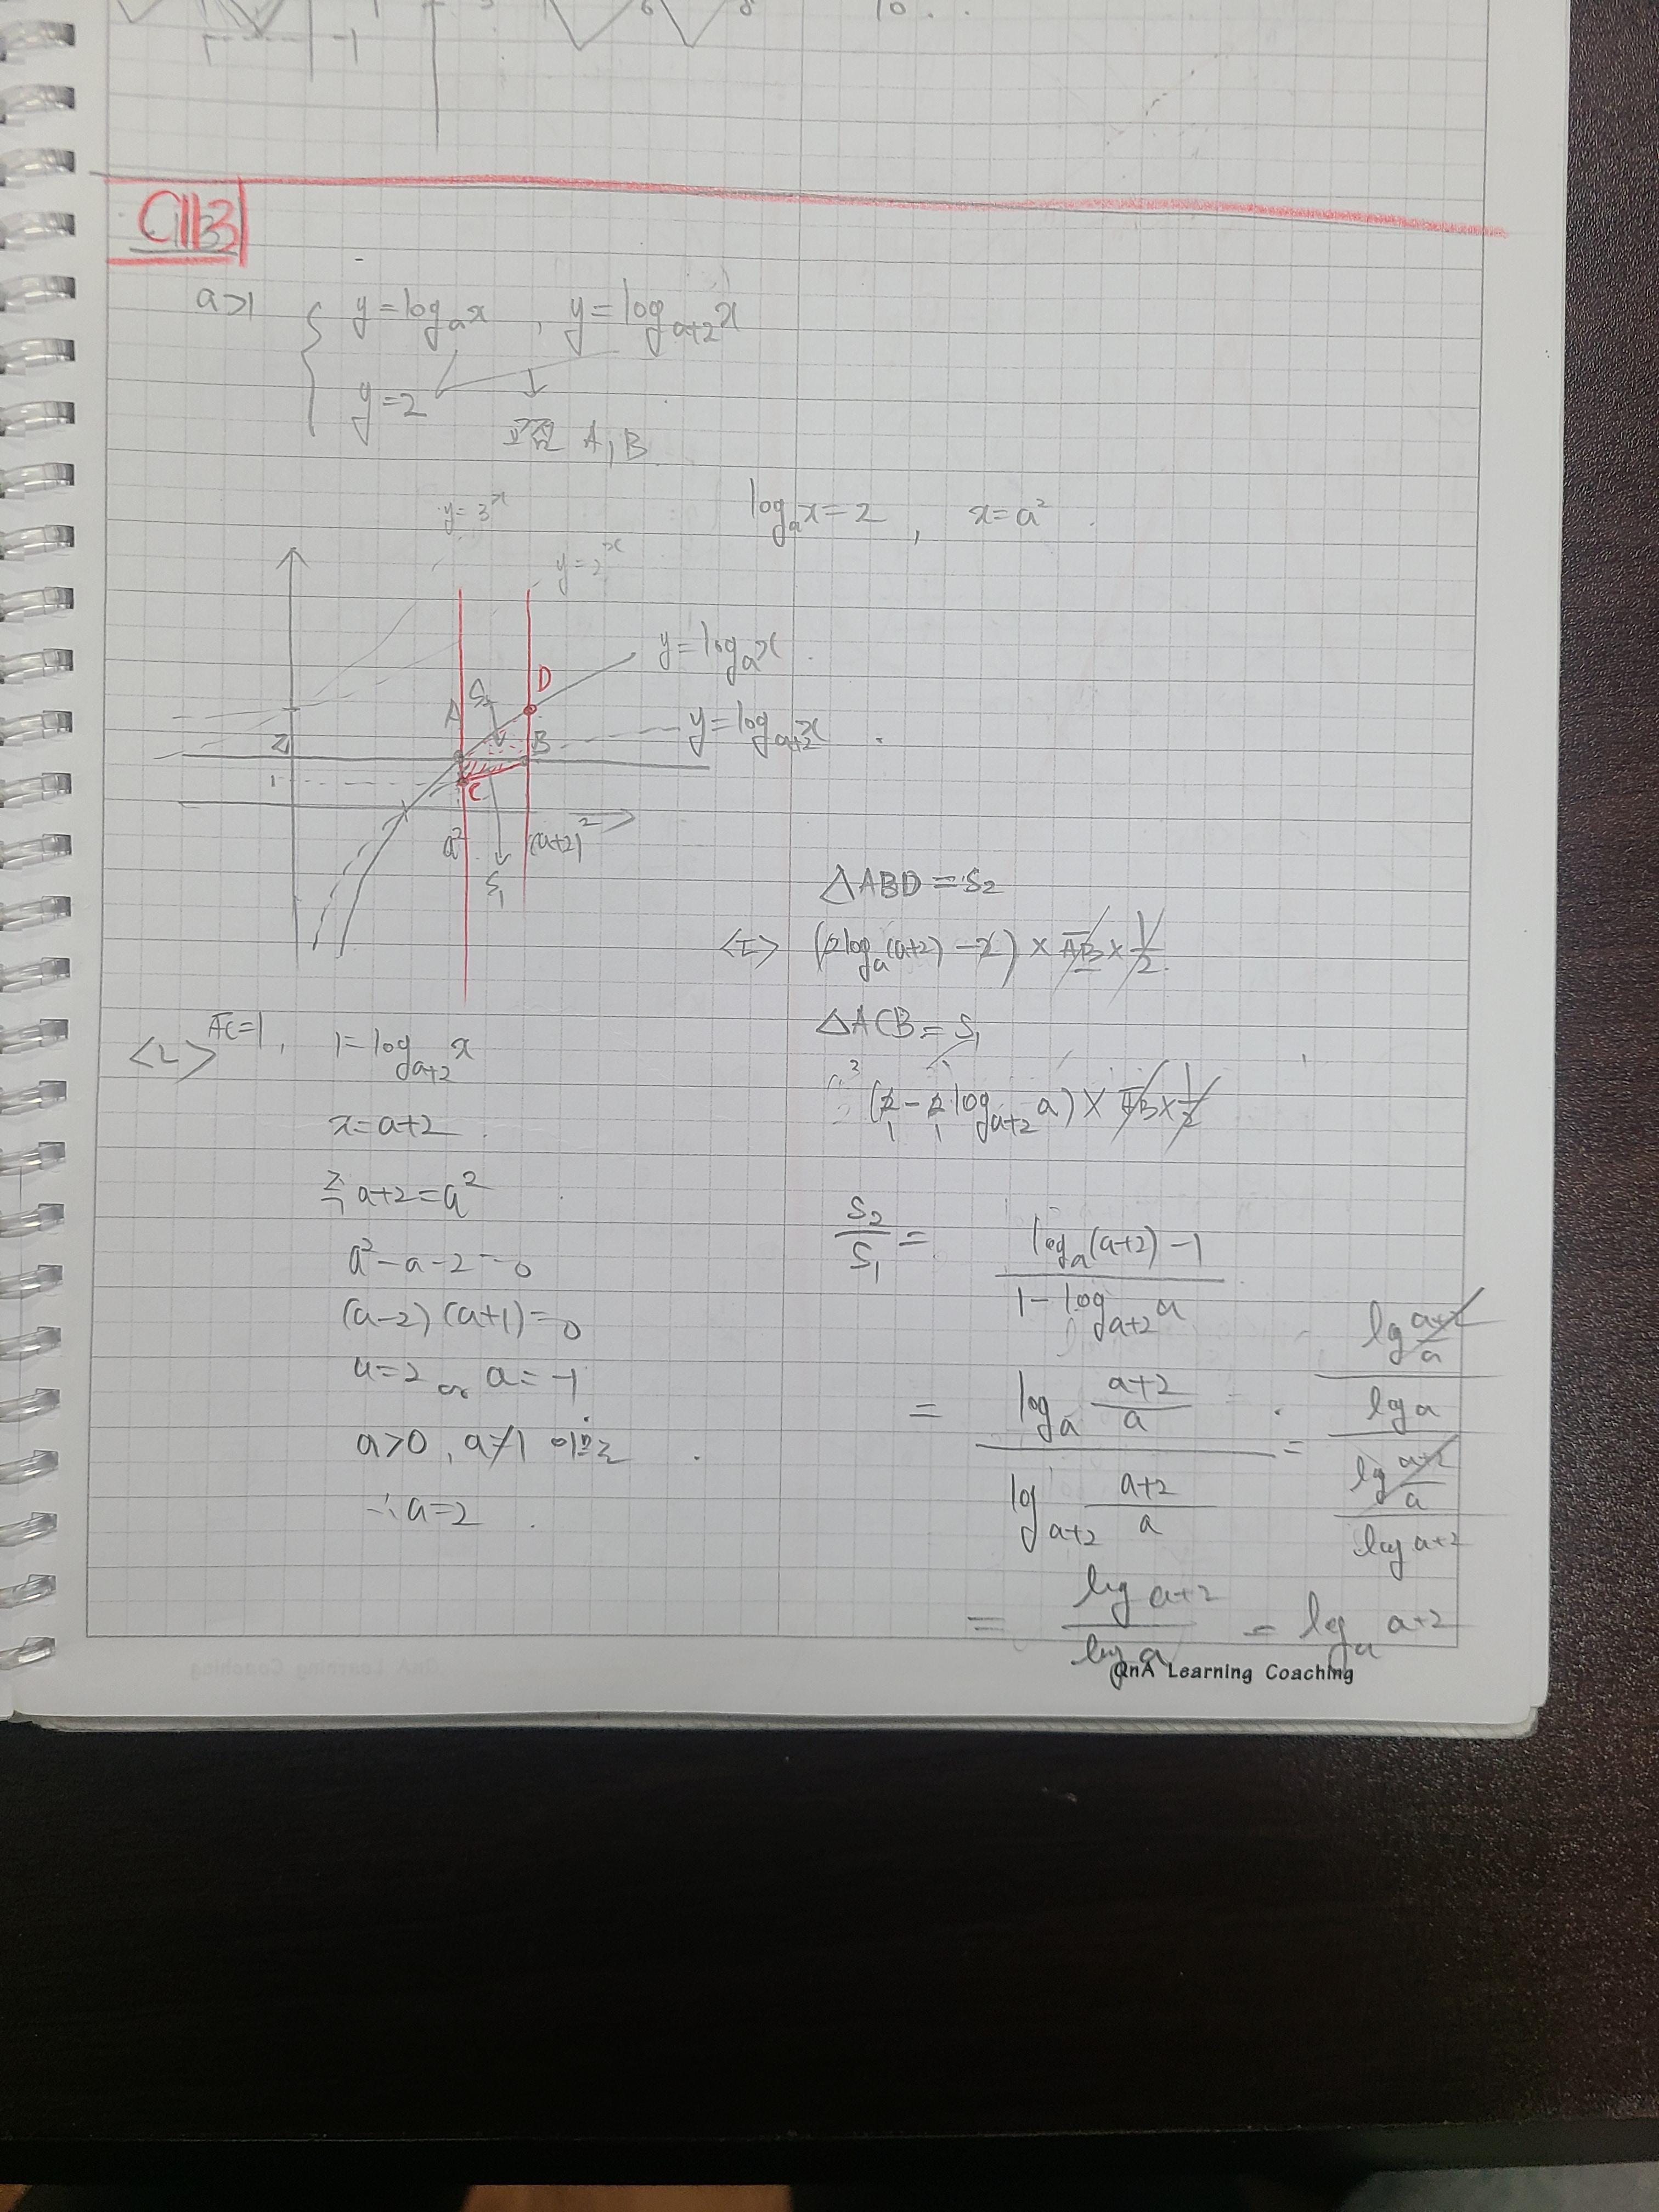 -1
3
6
8
10
C113
a>1
y=log_a x , y=log_{a+2} x
y=2
교점 A, B
log_a x=2 , x=a²
y=3^x
y=2^x
y=log_a x
D
S₂
A
y=log_{a+2} x
B
2
1
C
a²
(a+2)²
S₁
△ABD=S₂
<ㄷ> (2log_a(a+2)-2)×AB×1/2
△ACB=S₁
(2-2log_{a+2} a)×AB×1/2
1 1
<ㄴ> AC=1, 1=log_{a+2} x
x=a+2
즉 a+2=a²
a²-a-2=0
(a-2)(a+1)=0
a=2 or a=-1
a>0, a≠1 이므로
∴a=2
S₂/S₁ = (log_a(a+2)-1)/(1-log_{a+2} a)
= (log_a (a+2)/a)/(log_{a+2} (a+2)/a) = ((log (a+2)/a)/(log a))/((log (a+2)/a)/(log a+2))
= (log a+2)/(log a) = log_a a+2
QnA Learning Coaching